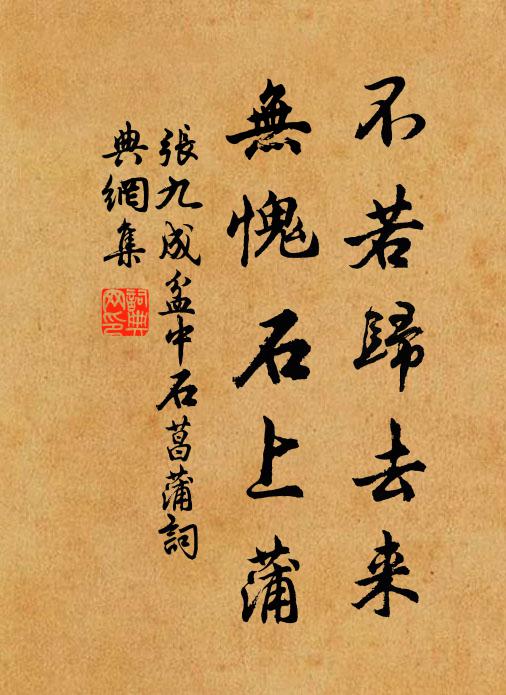 不若歸去来
無愧石上蒲
張九成盆中石菖蒲詞
典網集
詞典網印